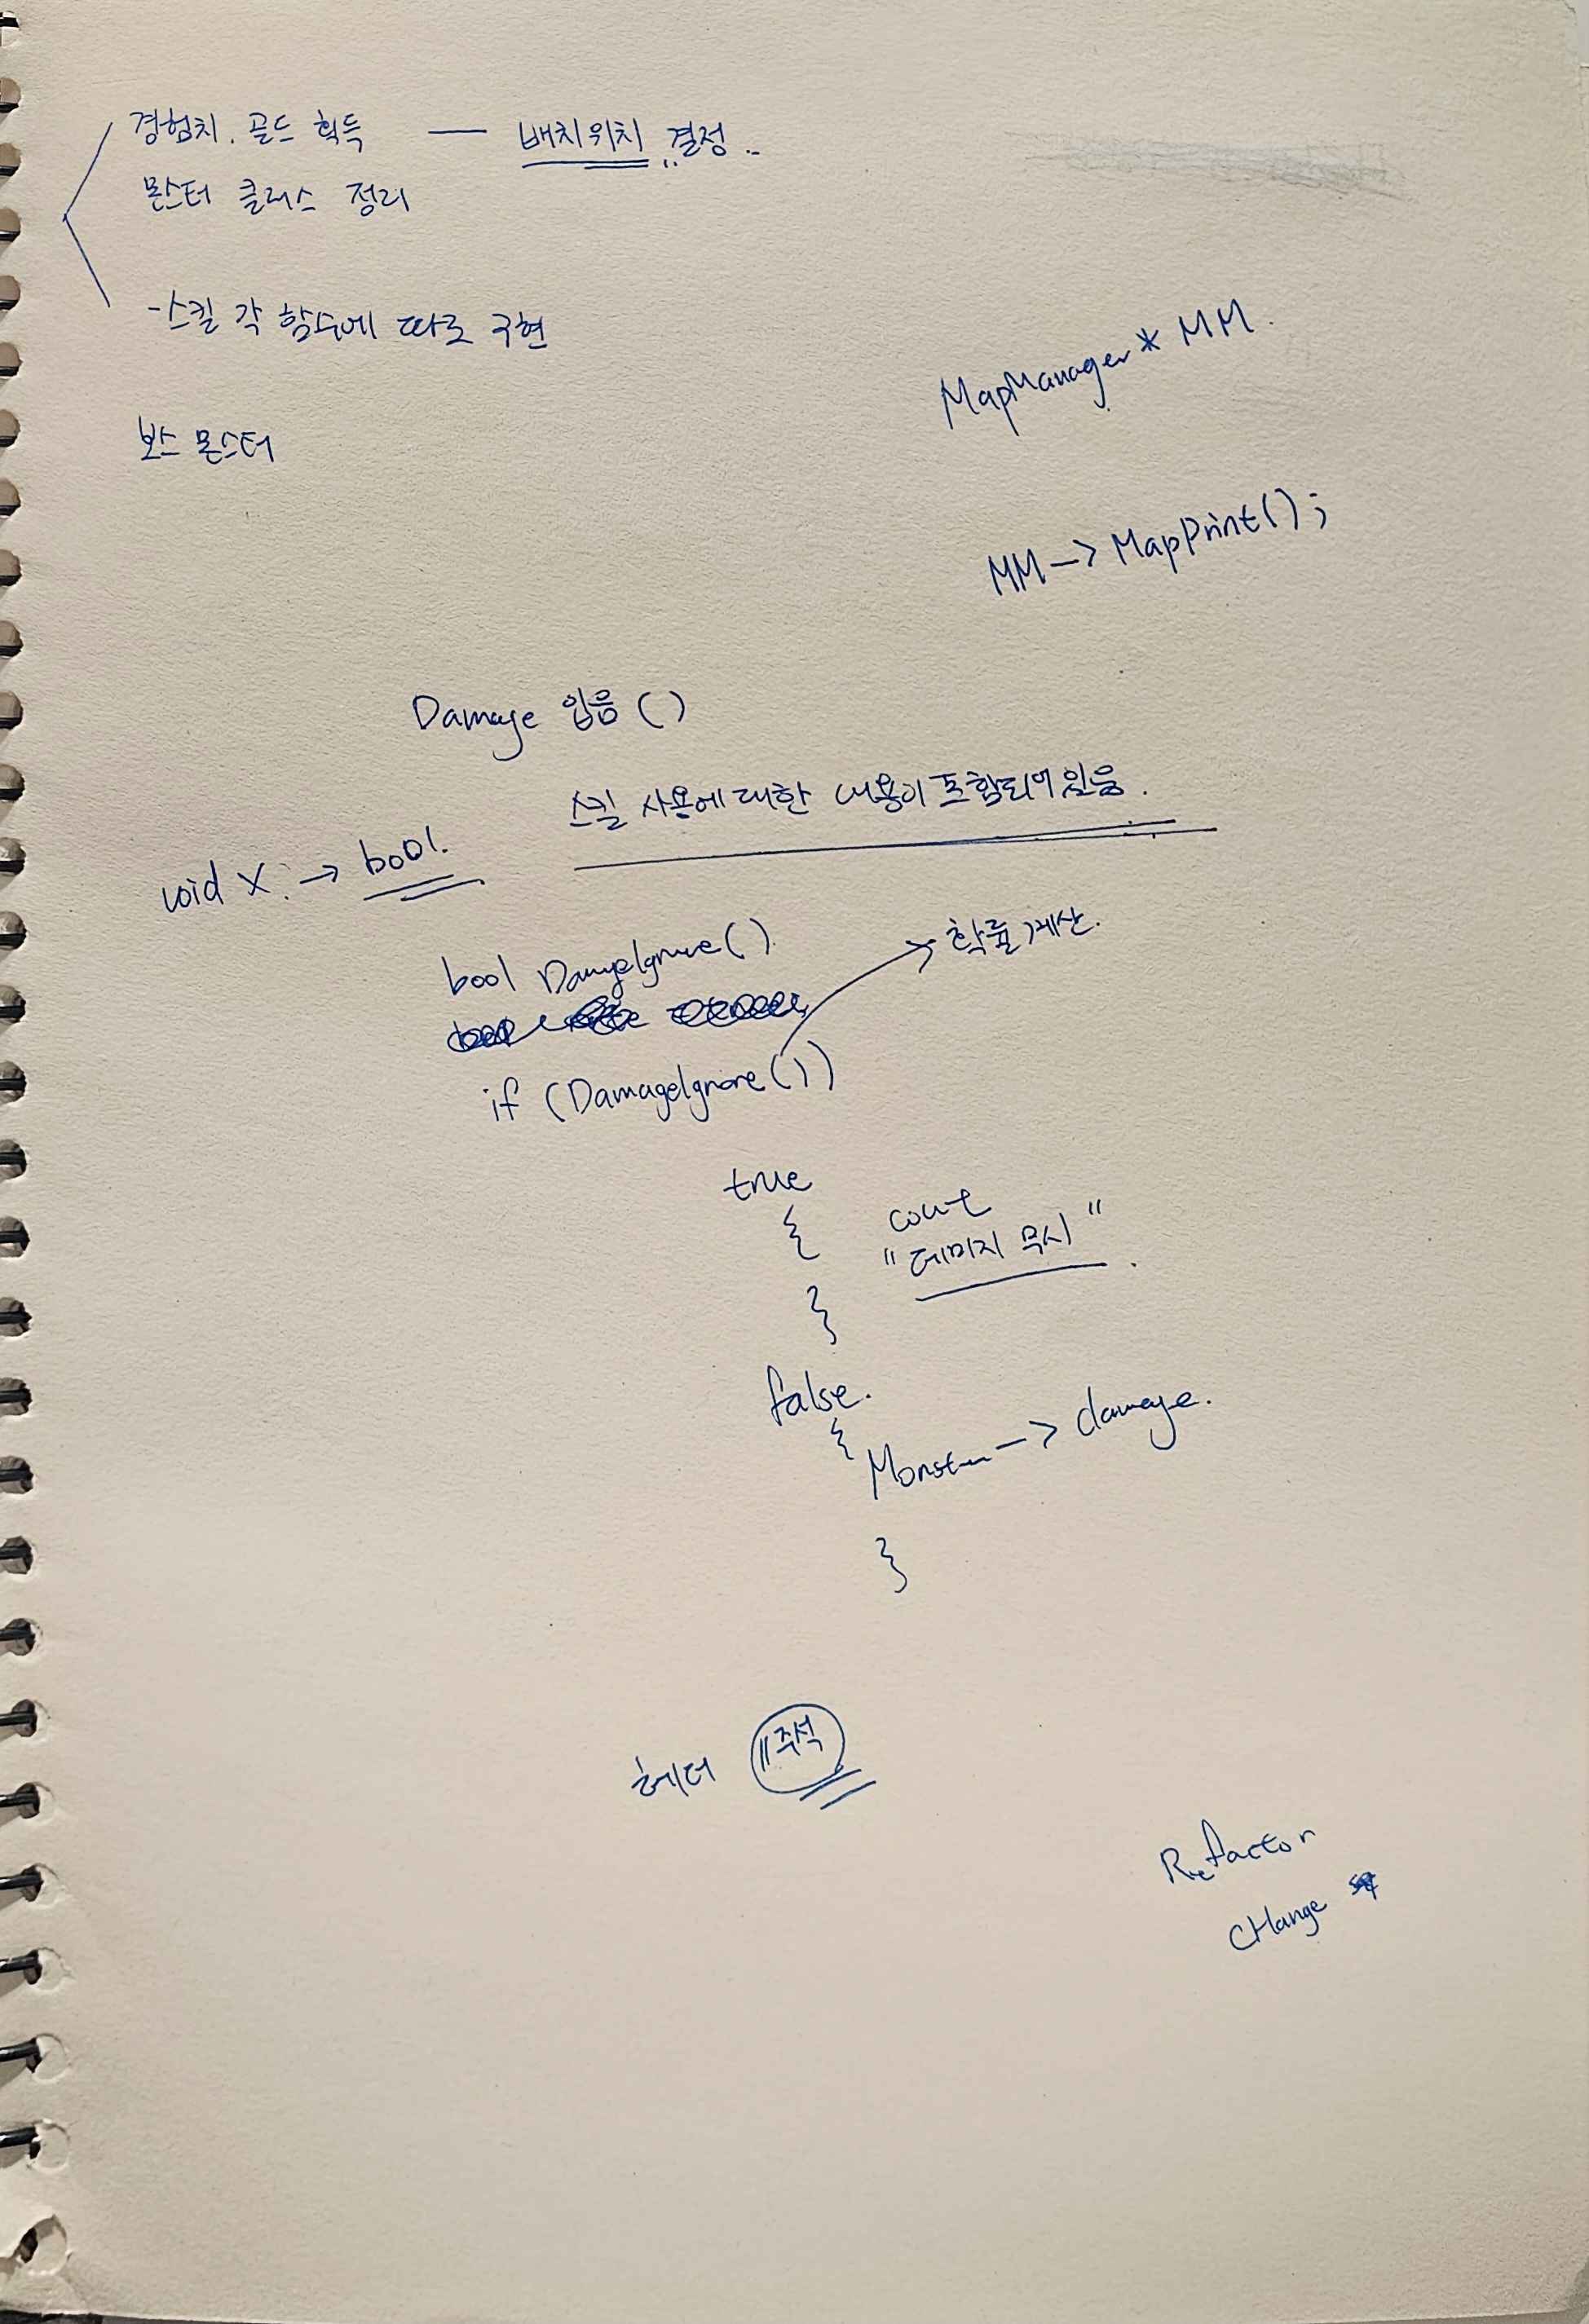 경험치. 골드 획득 — 배치위치 결정..
몬스터 클래스 정리
- 스킬 각 함수에 따로 구현
MapManager * MM.
보스 몬스터
MM -> MapPrint();
Damage 입음 ( )
스킬 사용에 대한 내용이 포함되어 있음.
void X. → bool.
bool DamageIgnore().
→ 확률계산.
if (DamageIgnore())
true
{ cout
"데미지 무시".
}
false.
{
Monster -> damage.
}
헤더 //주석
Refactor
CHange